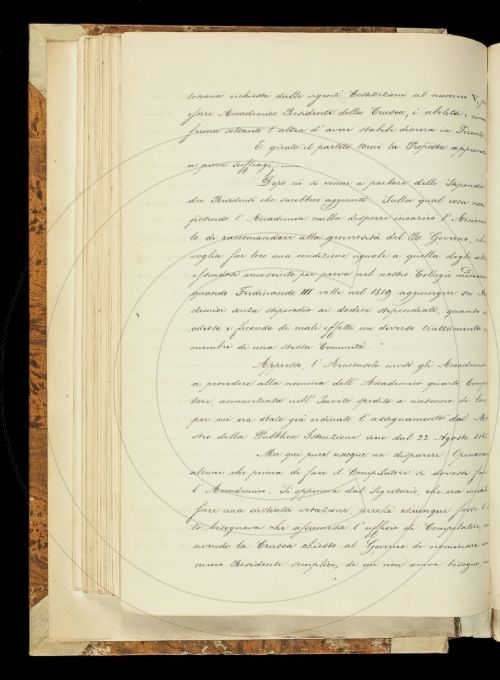 toscana richiesta dalle vigenti Costituzioni al numero V. p
essere Accademico Residente della Crusca, è abolita, rima
ferma soltanto l'altra d'avere stabile dimora in Firenze
E girato il partito tornò la Proposta approvata
a pieni suffragi.
Dopo ciò si venne a parlare dello Stipendio
dei Residenti che sarebbero aggiunti. Sulla qual cosa non
potendo l'Accademia nulla disporre incaricò l'Arcicon
lo di raccomandare alla generosità del R. Governo, che
voglia far loro una condizione uguale a quella degli altri
essendosi conosciuto per prova nel nostro Collegio medesimo
quando Ferdinando III volle nel 1819 aggiungere su Ac
demici senza stipendio ai dodici stipendiati, quanto
odioso e fecondo di mali effetti un diverso trattamento a
membri di una stessa Comunità."
Appresso, l'Arciconsolo invitò gli Accademici
a procedere alla nomina dell'Accademico quarto Compi
tore, annunziata nell'Invito spedito a ciascuno di loro
per cui era stato già ordinato l'assegnamento dal Mi
stro della Pubblica Istruzione sino dal 22 Agosto
Ma qui pure nacque un disparere. Opinavano
alcuni che prima di fare il Compilatore si dovesse fare
l'Accademico. Si opponeva dal Segretario, che era inutile
fare una distinta votazione, perchè chiunque fosse l'
to bisognava che assumesse l'ufficio di Compilatore, non
avendo la Crusca chiesto al Governo di nominare un
nuovo Residente semplice, di cui non aveva bisogno,